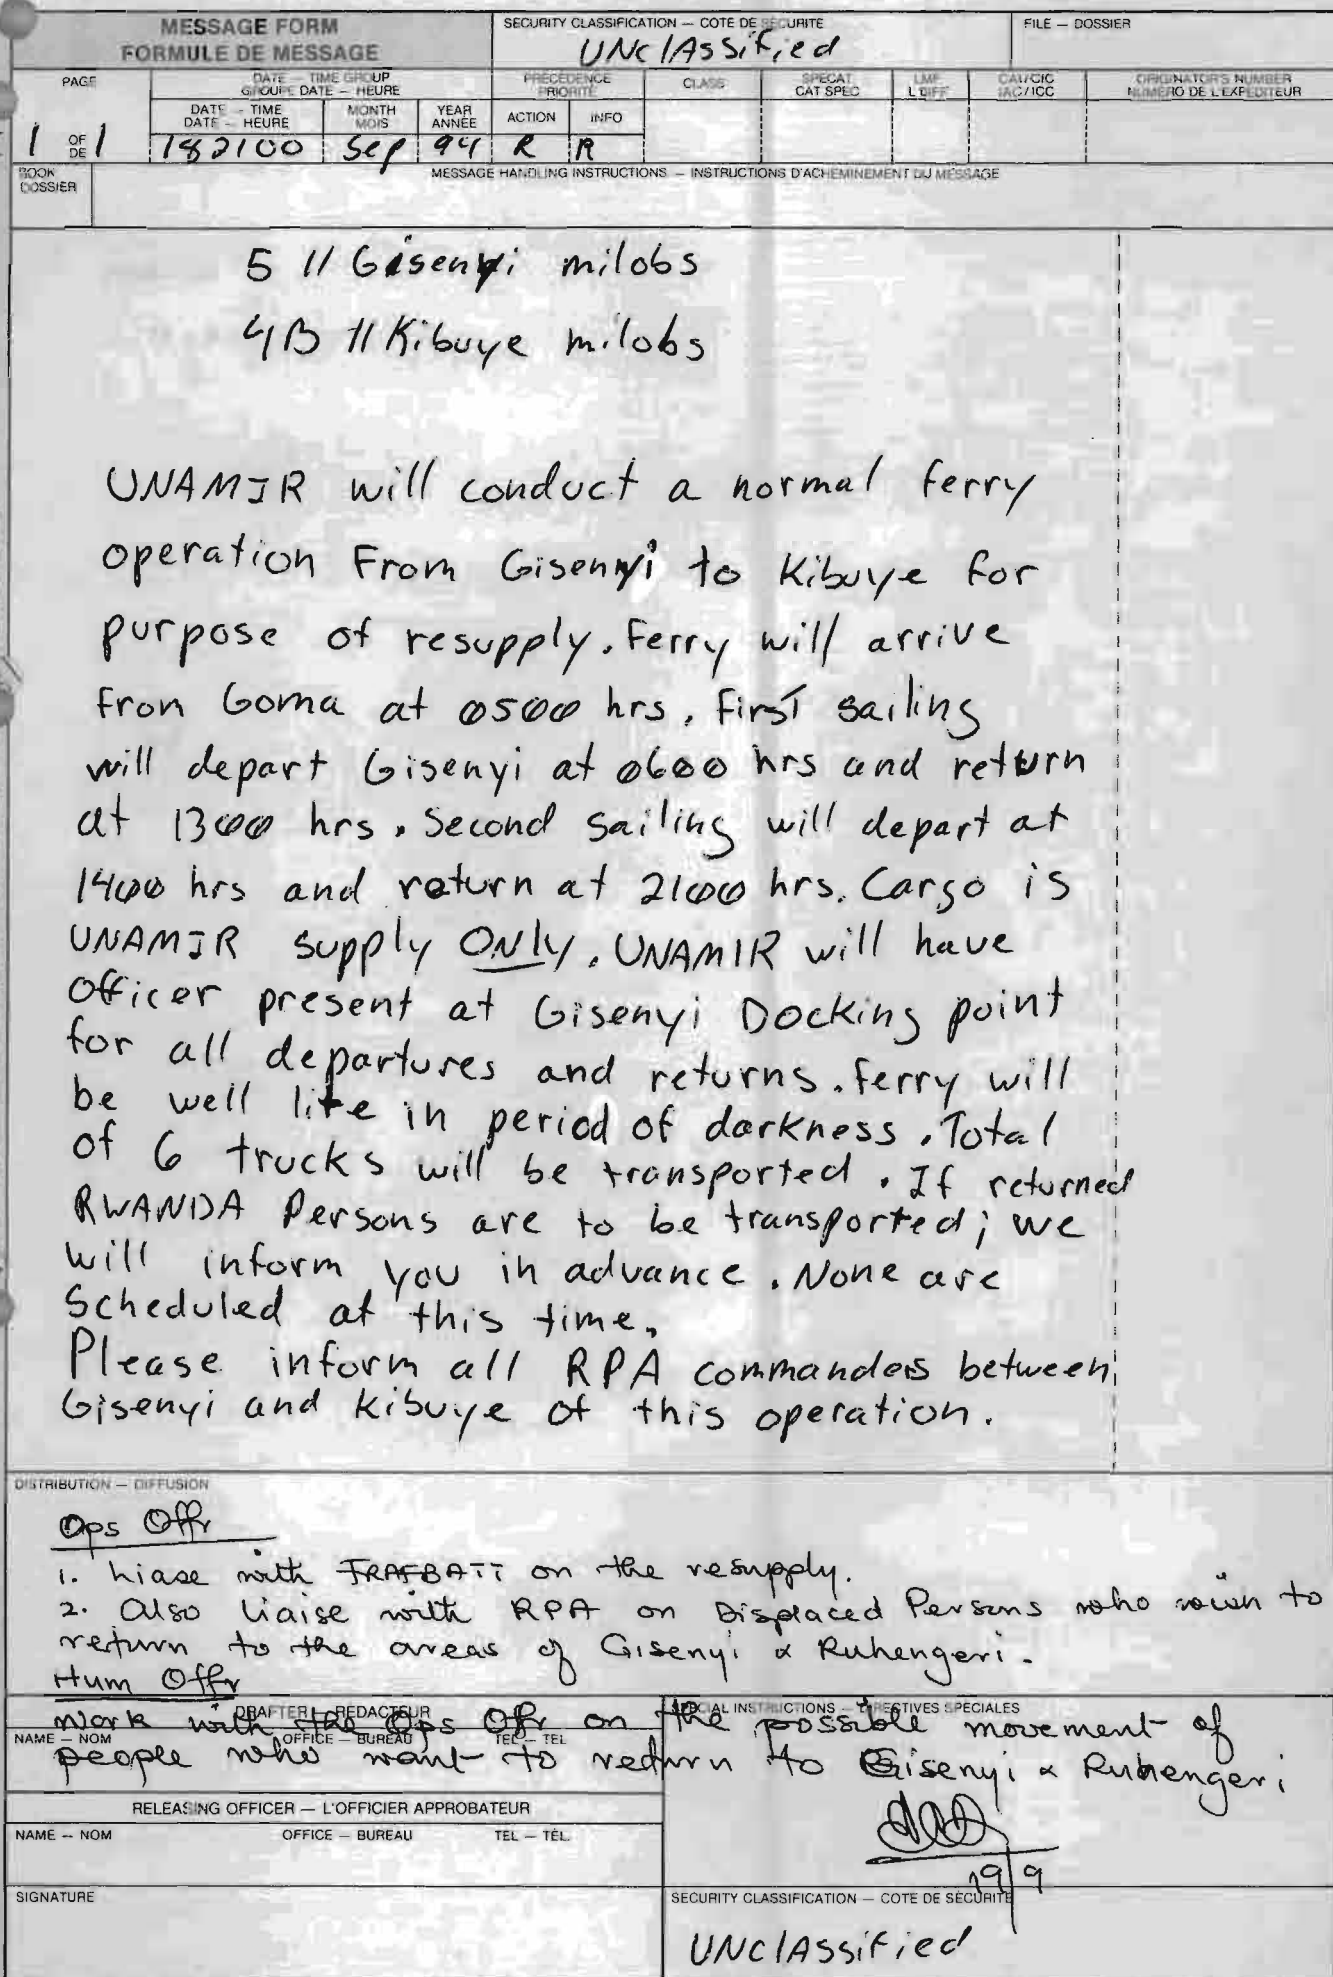 MESSAGE FORM
FORMULE DE MESSAGE
SECURITY CLASSIFICATION — COTE DE SÉCURITÉ
UNclASSified
FILE — DOSSIER
PAGE
DATE — TIME GROUP
GROUPE DATE — HEURE
PRECEDENCE
PRIORITÉ
CLASS
SPECAT
CAT SPEC
LMF
L DIFF
CAI/CIC
IAC/ICC
ORIGINATOR'S NUMBER
NUMÉRO DE L'EXPÉDITEUR
DATE — TIME
DATE — HEURE
MONTH
MOIS
YEAR
ANNÉE
ACTION
INFO
1 OF DE 1
182100
Sep
94
R
R
BOOK
DOSSIER
MESSAGE HANDLING INSTRUCTIONS — INSTRUCTIONS D'ACHEMINEMENT DU MESSAGE
5 // Gisenyi milobs
4B // Kibuye milobs
UNAMIR will conduct a normal ferry
operation From Gisenyi to Kibuye for
purpose of resupply. Ferry will arrive
from Goma at 0500 hrs. First sailing
will depart Gisenyi at 0600 hrs and return
at 1300 hrs. Second sailing will depart at
1400 hrs and return at 2100 hrs. Cargo is
UNAMIR supply ONly. UNAMIR will have
Officer present at Gisenyi Docking point
for all departures and returns. Ferry will
be well lite in period of darkness. Total
of 6 trucks will be transported. If returned
RWANDA Persons are to be transported; we
will inform you in advance. None are
Scheduled at this time.
Please inform all RPA commanders between
Gisenyi and Kibuye of this operation.
DISTRIBUTION — DIFFUSION
Ops Offr
1. Liase with FRAFBATT on the resupply.
2. Also liaise with RPA on Displaced Persons who wish to
return to the areas of Gisenyi & Ruhengeri.
Hum Offr
Work with the Ops Offr on the possible movement of
people who want to return to Gisenyi & Ruhengeri
DRAFTER — RÉDACTEUR
SPECIAL INSTRUCTIONS — DIRECTIVES SPÉCIALES
NAME — NOM
OFFICE — BUREAU
TEL — TÉL
RELEASING OFFICER — L'OFFICIER APPROBATEUR
NAME — NOM
OFFICE — BUREAU
TEL — TÉL.
19/9
SIGNATURE
SECURITY CLASSIFICATION — COTE DE SÉCURITÉ
UNclASSified